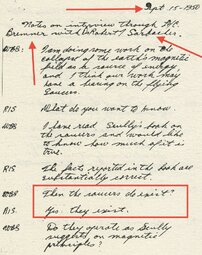 Sept 15-1950
Notes on interview through Lt.
Bremner with Robert I Sarbacher.
WBS: I am doing some work on the
collapse of the earth's magnetic
field as a source of energy
and I think our work may
have a bearing on the flying
saucers.
RIS What do you want to know.
WBS I have read Scully's book on
the saucers and would like
to know how much of it is
true.
RIS The facts reported in the book are
substantially correct.
WBS Then the saucers do exist?
RIS. Yes: they exist.
WBS Do they operate as Scully
suggests on magnetic
principles?